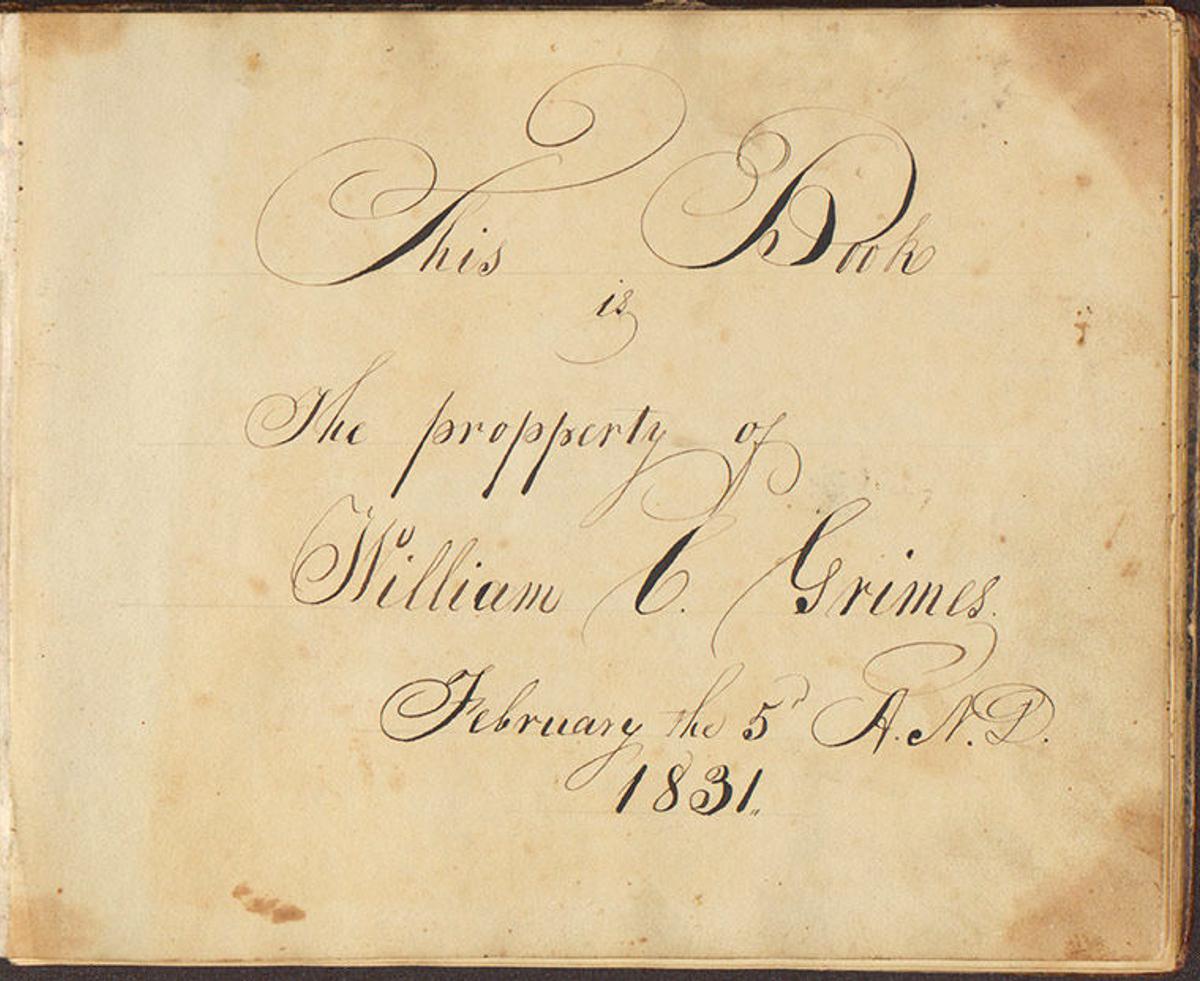 This Book
is
The propperty of
William C. Grimes.
February the 5d A.N.D.
1831.